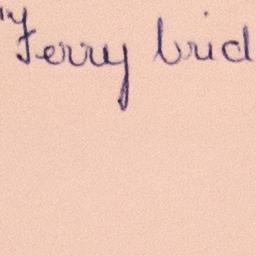 "Ferry brid